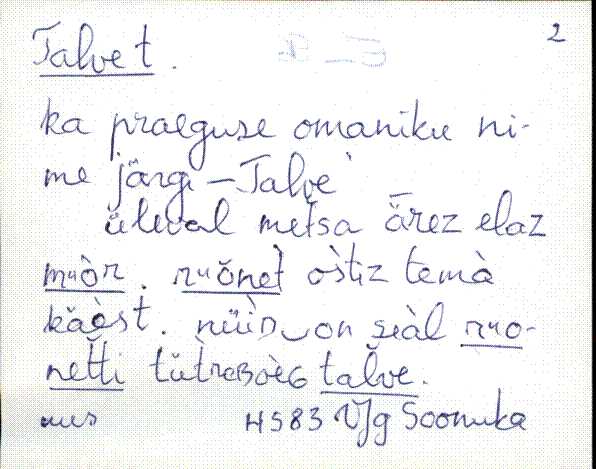 2
Talve t.
ka praeguse omaniku ni-
me järgi – Talve
ülevàl metsa ǟrez elaz
mᵘòr. rᵘŏnet òstiz temà
kăèst. nüüD‿on seàl rᵘo-
netti tütrepoèG talve.
HS83 VJg Soonuka